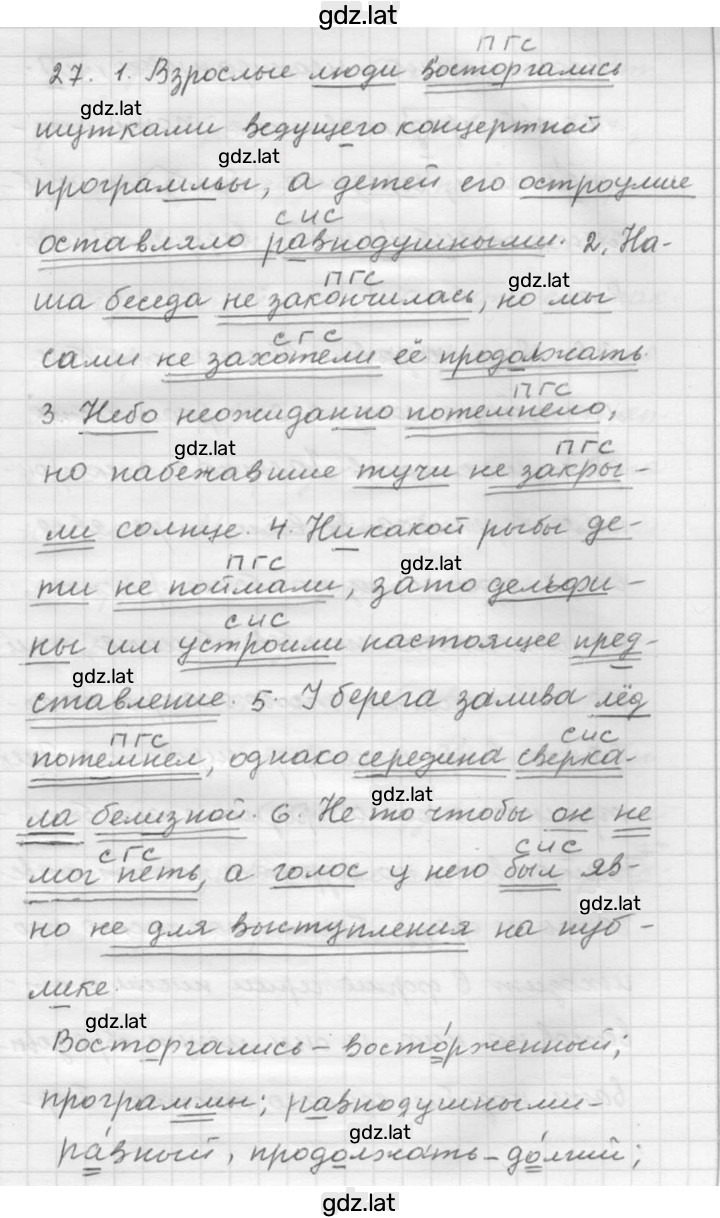 gdz.lat
ПГС
27. 1. Взрослые люди восторгались
gdz.lat
шутками ведущего концертной
gdz.lat
программы, а детей его остроумие
СИС
оставляло равнодушными. 2. На-
ПГС gdz.lat
ша беседа не закончилась, но мы
СГС
сами не захотели её продолжать.
ПГС
3. Небо неожиданно потемнело,
gdz.lat ПГС
но набежавшие тучи не закры-
ли солнце. 4. Никакой рыбы де-
ПГС gdz.lat
ти не поймали, зато дельфи-
СИС
ны им устроили настоящее пред-
gdz.lat
ставление. 5. У берега залива лёд
ПГС СИС
потемнел, однако середина сверка-
gdz.lat
ла белизной. 6. Не то чтобы он не
СГС СИС
мог петь, а голос у него был яв-
gdz.lat
но не для выступления на пуб-
лике.
gdz.lat
Восторгались – восто́рженный;
программы; равнодушными –
gdz.lat
ра́вный, продолжать – до́лгий;
gdz.lat